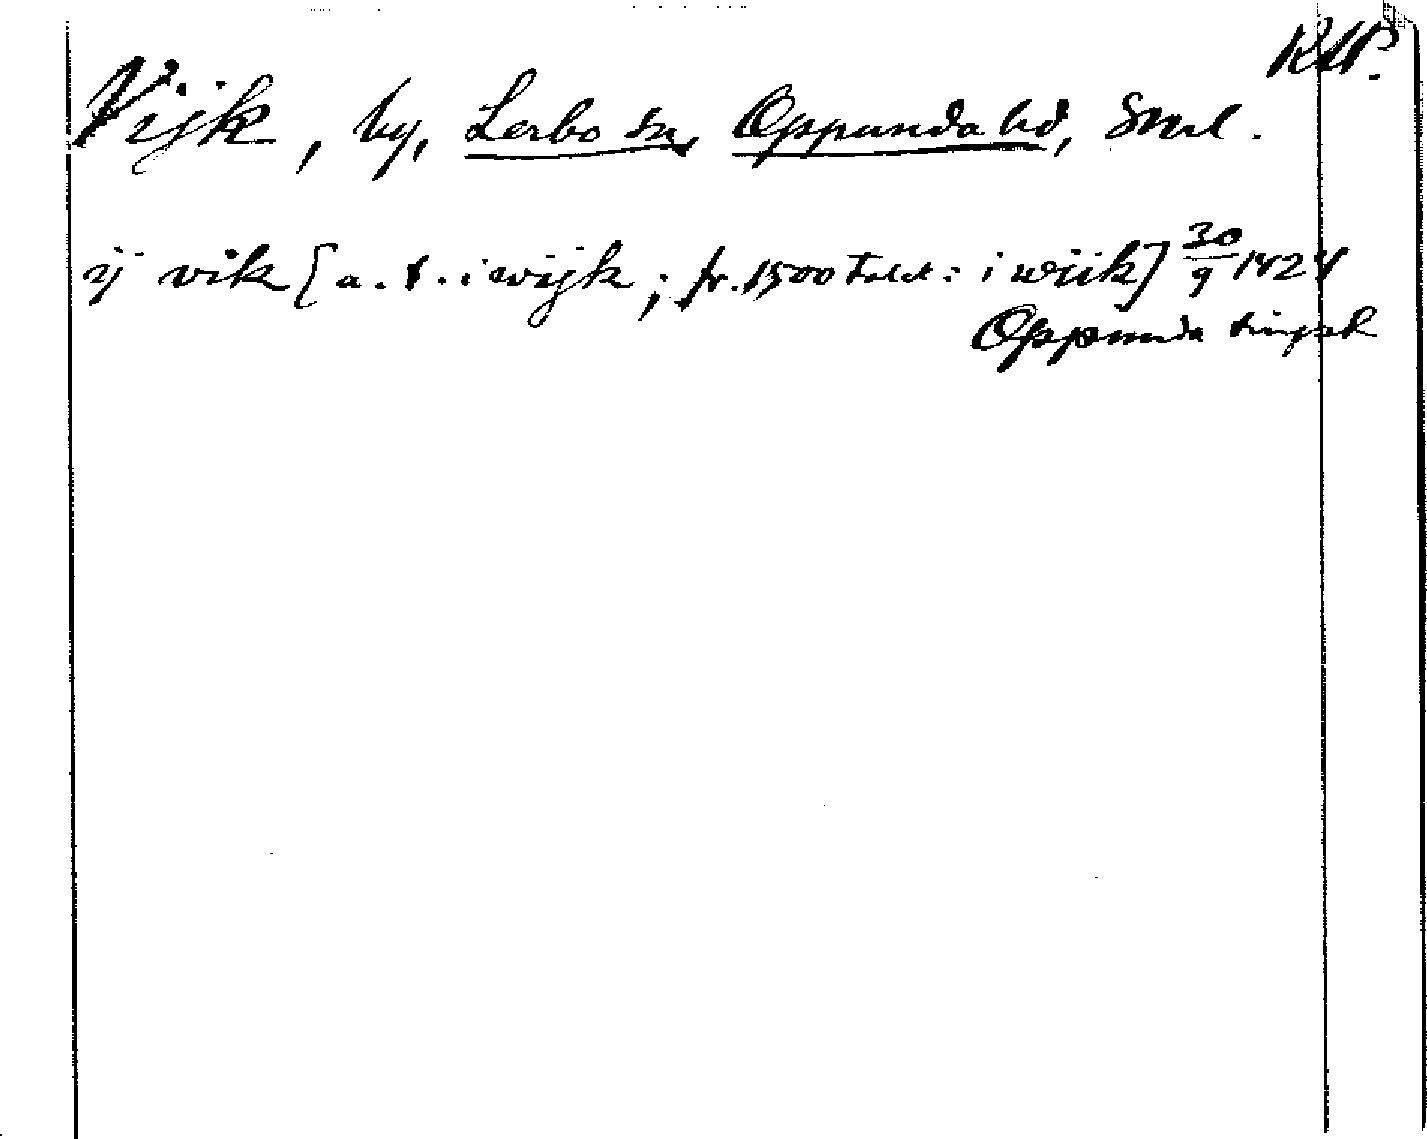 RAP.
Vijk, by, Lerbo sn, Oppunda hd, Sml.
ij vik [a. t. i wijk; fr. 1500 talet: i wiik] 30/9 1424
Oppunda tingsh